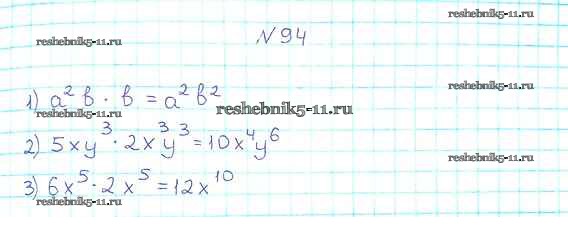 № 94
reshebnik5-11.ru
reshebnik5-11.ru
1) a² b · b = a² b²
reshebnik5-11.ru
reshebnik5-11.ru
reshebnik5-11.ru
2) 5xy³ · 2x³y³ = 10x⁴y⁶
reshebnik5-11.ru
3) 6x⁵ · 2x⁵ = 12x¹⁰
reshebnik5-11.ru